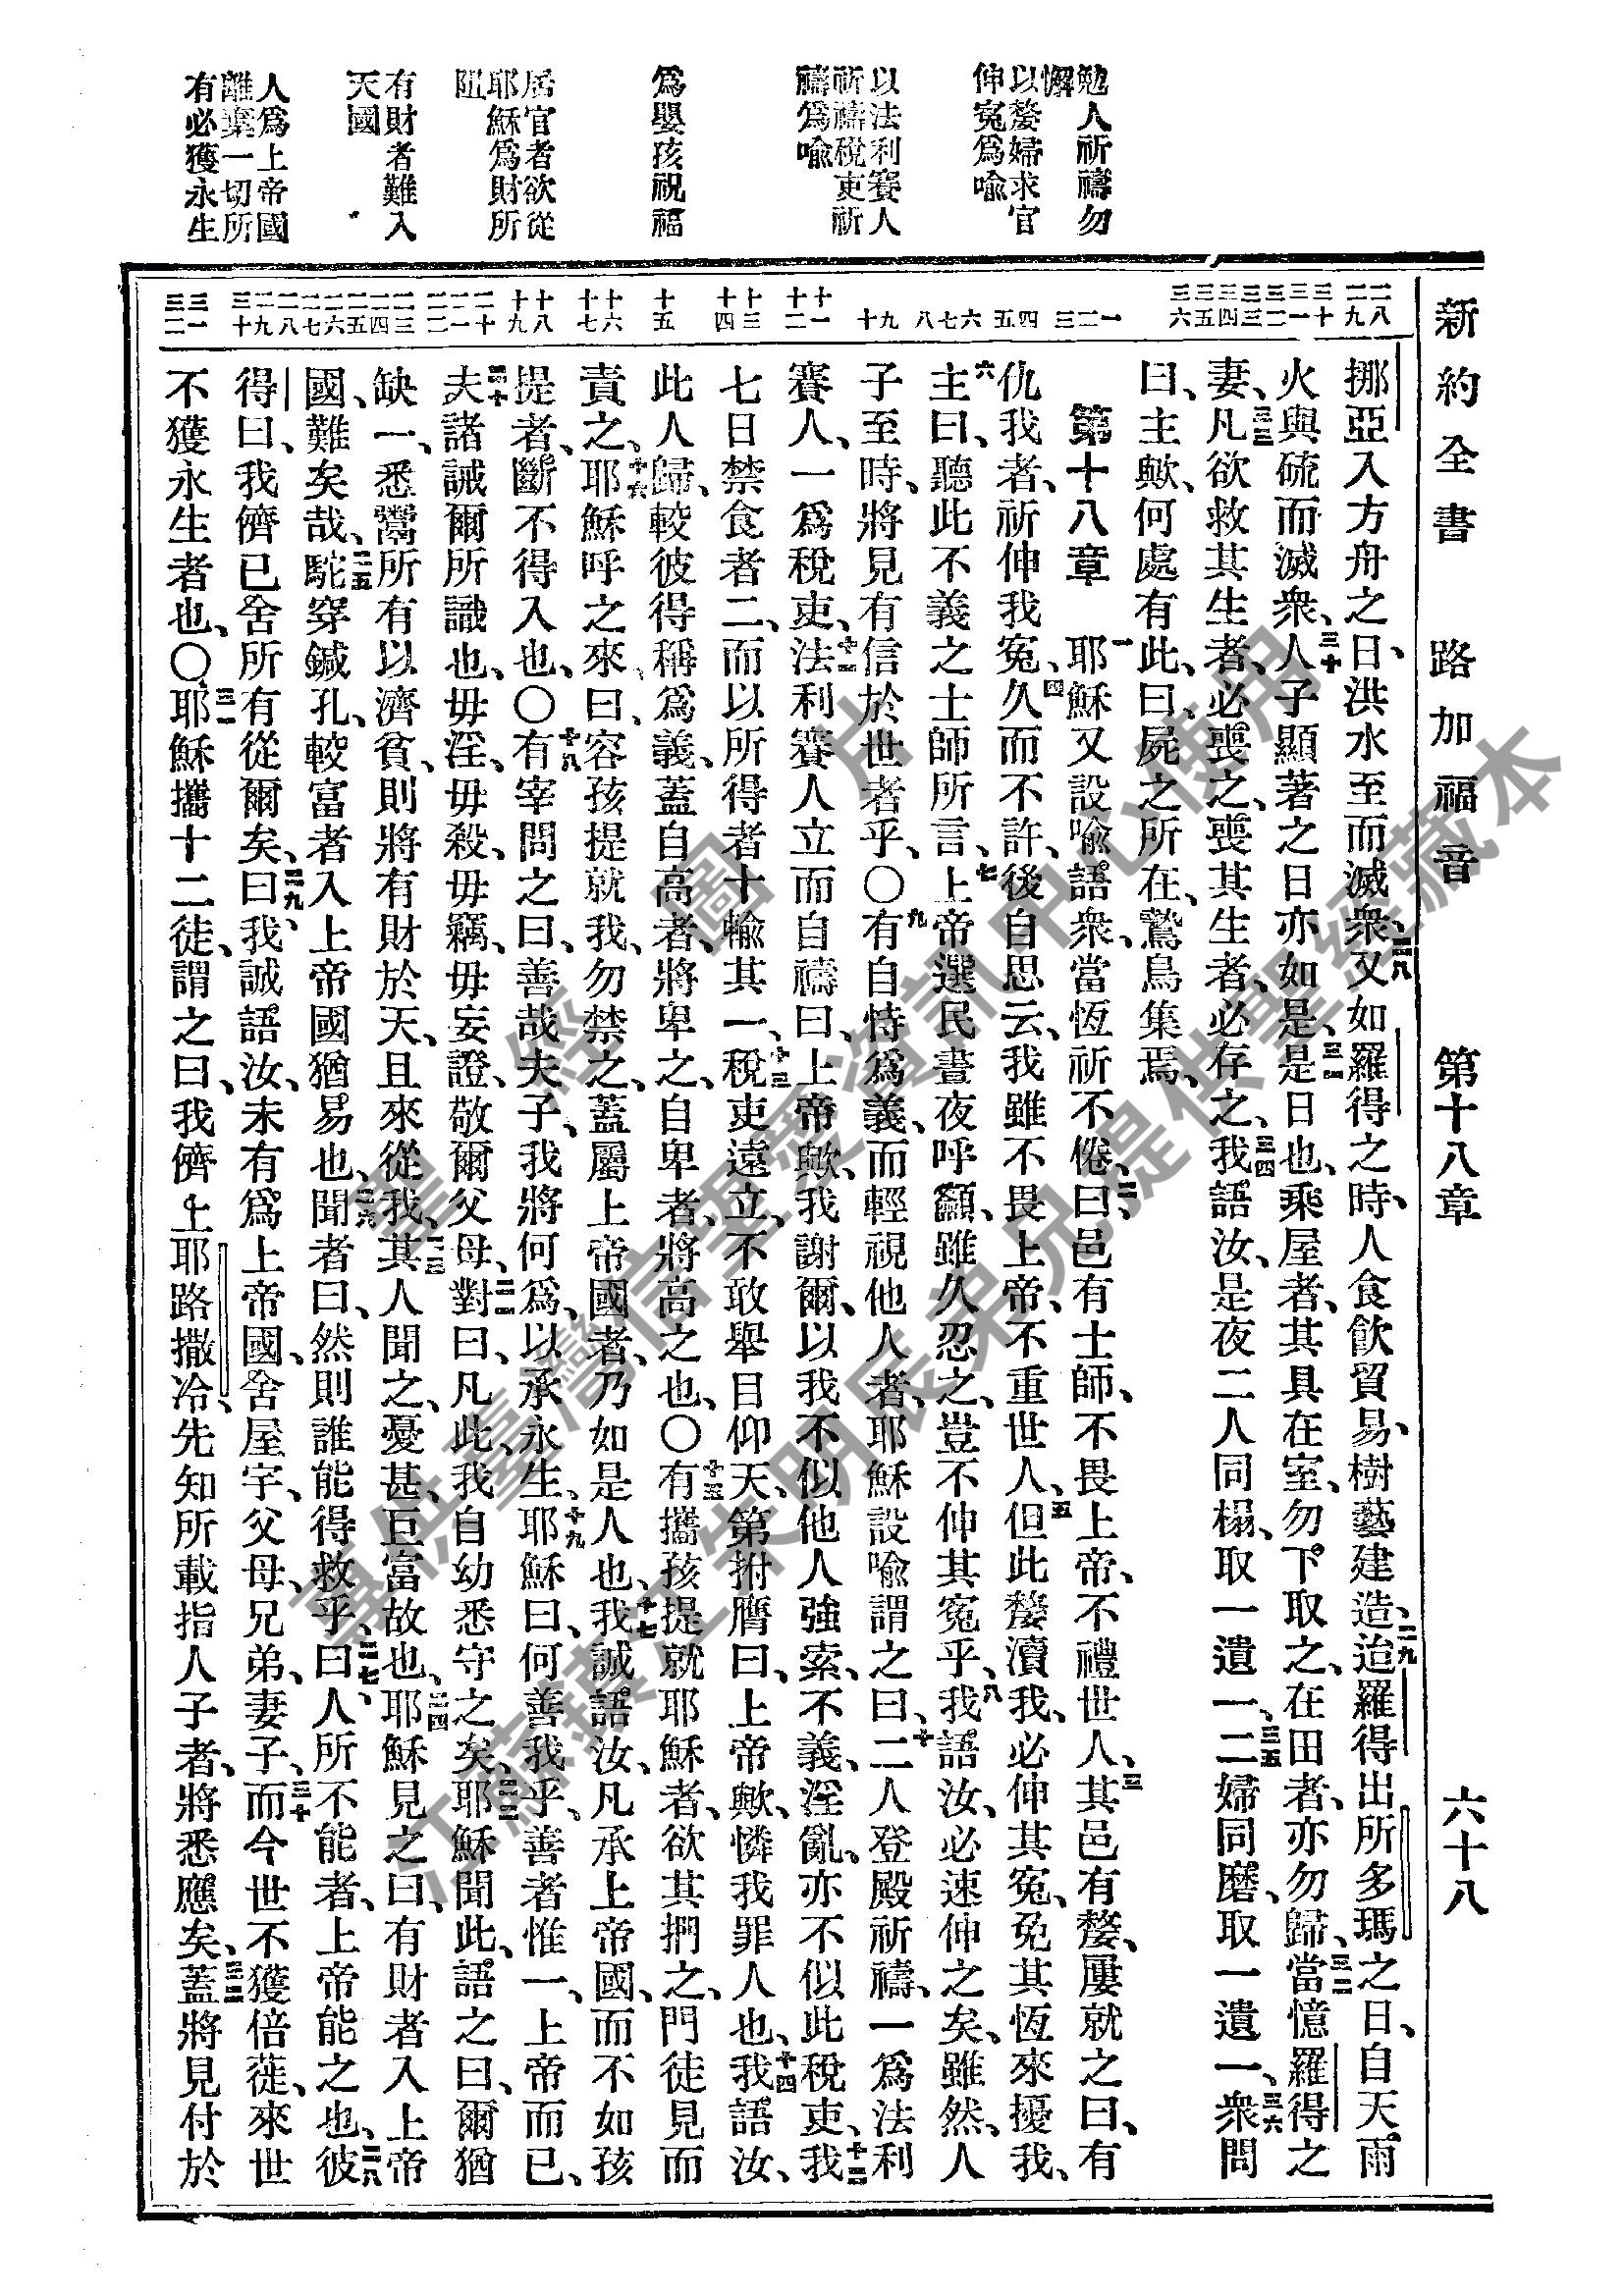 新約全書　路加福音　第十八章　六十八
勉人祈禱勿
懈
以嫠婦求官
伸寃爲喩
以法利賽人
祈禱稅吏祈
禱爲喩
爲嬰孩祝福
居官者欲從
耶穌爲財所
阻
有財者難入
天國
人爲上帝國
離棄一切所
有必獲永生
二八 二九 三十 三一 三二 三三 三四 三五 三六 一 二 三 四 五 六 七 八 九 十 十一 十二 十三 十四 十五 十六 十七 十八 十九 二十 二一 二二 二三 二四 二五 二六 二七 二八 二九 三十 三一 三二
挪亞入方舟之日、洪水至而滅衆、二八又如羅得之時、人食飮貿易、樹藝建造、二九迨羅得出所多瑪之日、自天雨
火與硫而滅衆、三十人子顯著之日亦如是、三一是日也、乘屋者、其具在室、勿下取之、在田者、亦勿歸、三二當憶羅得之
妻、三三凡欲救其生者、必喪之、喪其生者、必存之、三四我語汝、是夜二人同榻、取一遺一、三五二婦同磨、取一遺一、三六衆問
曰、主歟、何處有此、曰、屍之所在、鷲鳥集焉、
第十八章　一耶穌又設喩語衆、當恆祈不倦、二曰、邑有士師、不畏上帝、不禮世人、三其邑有嫠、屢就之曰、有
仇我者、祈伸我寃、四久而不許、後自思云、我雖不畏上帝、不重世人、五但此嫠瀆我、必伸其寃、免其恆來擾我、
六主曰、聽此不義之士師所言、七上帝選民晝夜呼籲、雖久忍之、豈不伸其寃乎、八我語汝、必速伸之矣、雖然、人
子至時、將見有信於世者乎、〇九有自恃爲義、而輕視他人者、耶穌設喩謂之曰、十二人登殿祈禱、一爲法利
賽人、一爲稅吏、十一法利賽人立而自禱曰、上帝歟、我謝爾、以我不似他人強索、不義、淫亂、亦不似此稅吏、十二我
七日禁食者二、而以所得者十輸其一、十三稅吏遠立、不敢舉目仰天、第拊膺曰、上帝歟、憐我罪人也、十四我語汝、
此人歸、較彼得稱爲義、蓋自高者、將卑之、自卑者、將高之也、〇十五有攜孩提就耶穌者、欲其捫之、門徒見而
責之、十六耶穌呼之來曰、容孩提就我、勿禁之、蓋屬上帝國者、乃如是人也、十七我誠語汝、凡承上帝國、而不如孩
提者、斷不得入也、〇十八有宰問之曰、善哉夫子、我將何爲、以承永生、十九耶穌曰、何善我乎、善者惟一、上帝而已、
二十夫諸誡爾所識也、毋淫、毋殺、毋竊、毋妄證、敬爾父母、二一對曰、凡此、我自幼悉守之矣、二二耶穌聞此、語之曰、爾猶
缺一、悉鬻所有以濟貧、則將有財於天、且來從我、二三其人聞之、憂甚、巨富故也、二四耶穌見之曰、有財者入上帝
國、難矣哉、二五駝穿鍼孔、較富者入上帝國猶易也、二六聞者曰、然則誰能得救乎、二七曰、人所不能者、上帝能之也、二八彼
得曰、我儕已舍所有從爾矣、二九曰、我誠語汝、未有爲上帝國、舍屋宇、父母、兄弟、妻子、三十而今世不獲倍蓰、來世
不獲永生者也、〇三一耶穌攜十二徒、謂之曰、我儕上耶路撒冷、先知所載指人子者、將悉應矣、三二蓋將見付於
聖經圖片
專供臺灣信望愛資訊中心使用
江蘇鎮江朱明辰弟兄提供聖經藏本